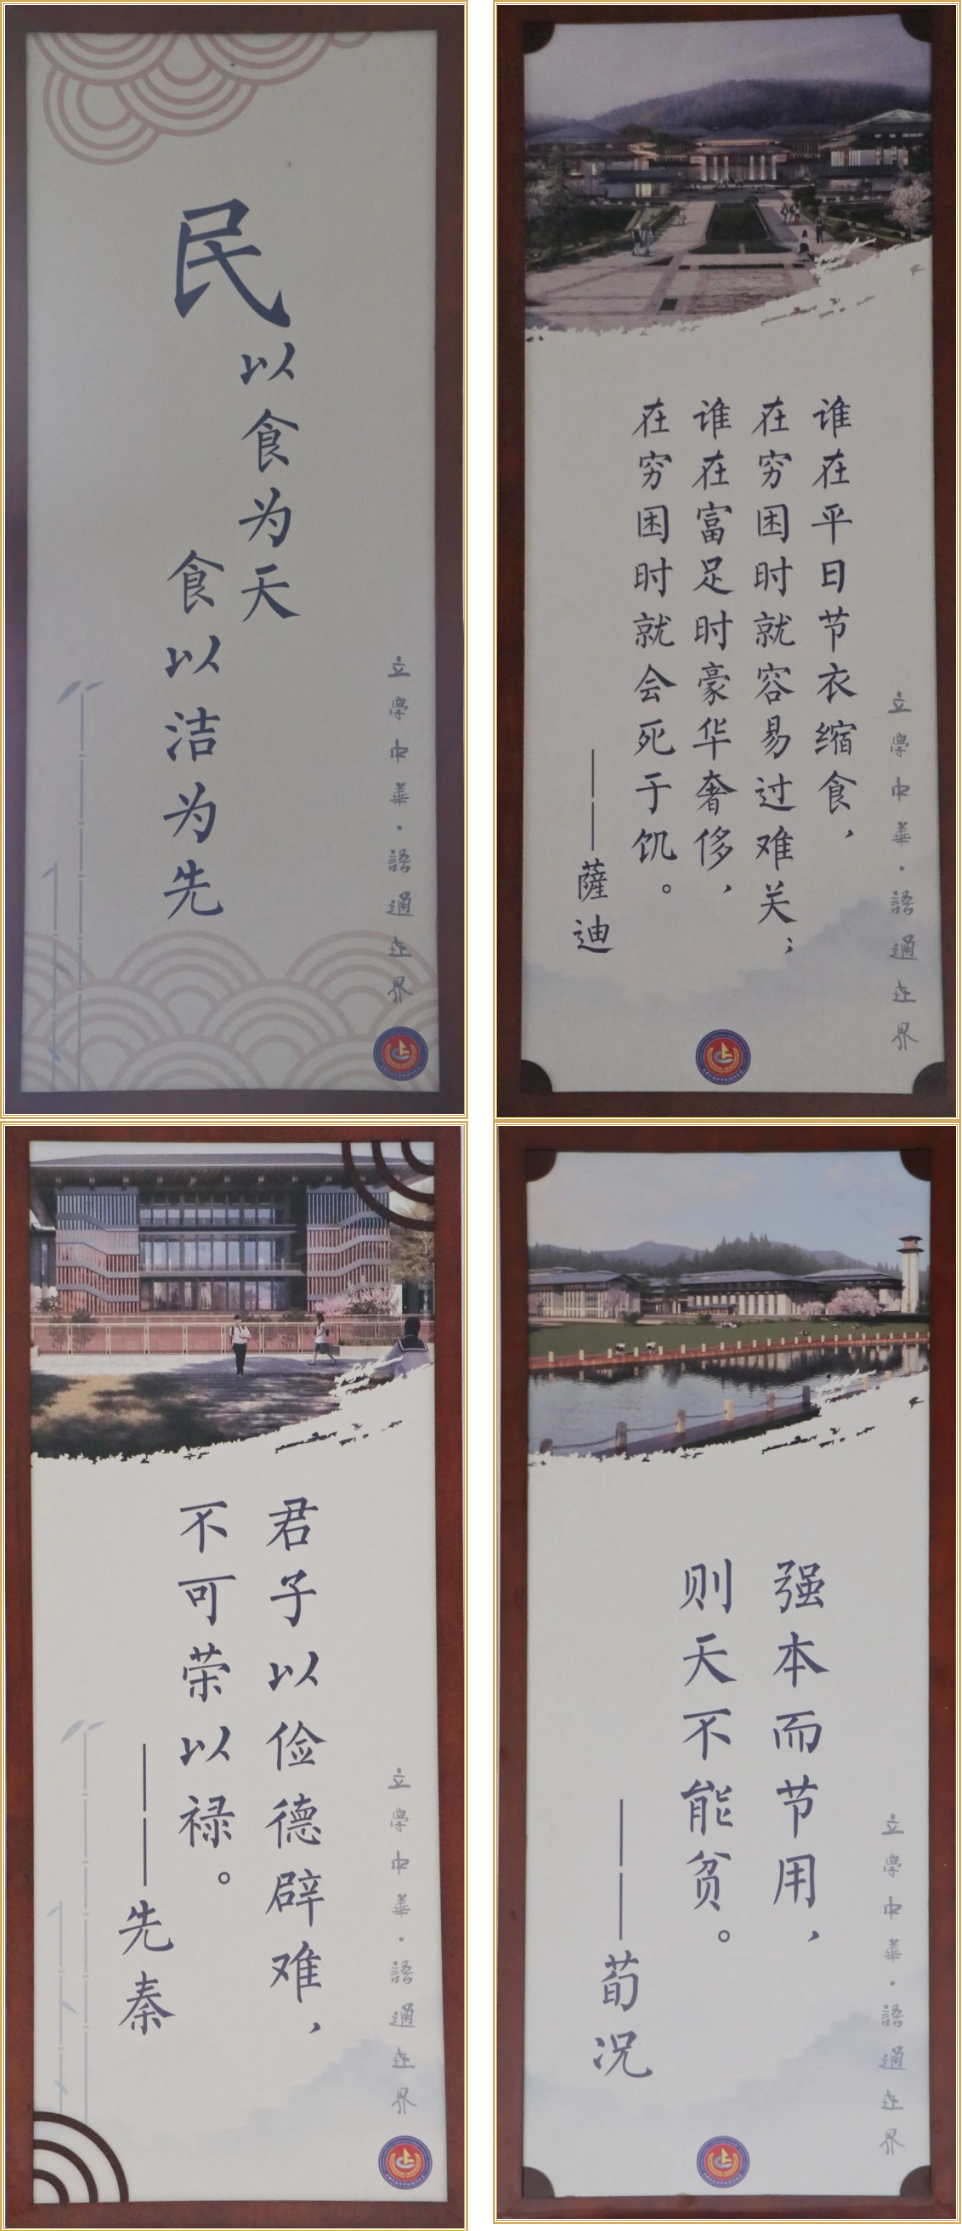 民
以食为天
食以洁为先
立學中華·語通世界
谁在平日节衣缩食，
在穷困时就容易过难关；
谁在富足时豪华奢侈，
在穷困时就会死于饥。
——薩迪
立學中華·語通世界
君子以俭德辟难，
不可荣以禄。
——先秦
立學中華·語通世界
强本而节用，
则天不能贫。
——荀况
立學中華·語通世界